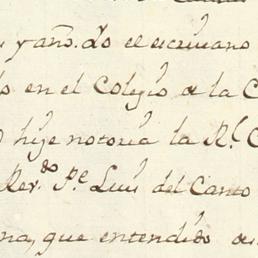 y año. do el escrivano
en el Colegio de la C
hije notoria la Rl. C
Revdo. Pe. Luis del Canto
na, que entendido de